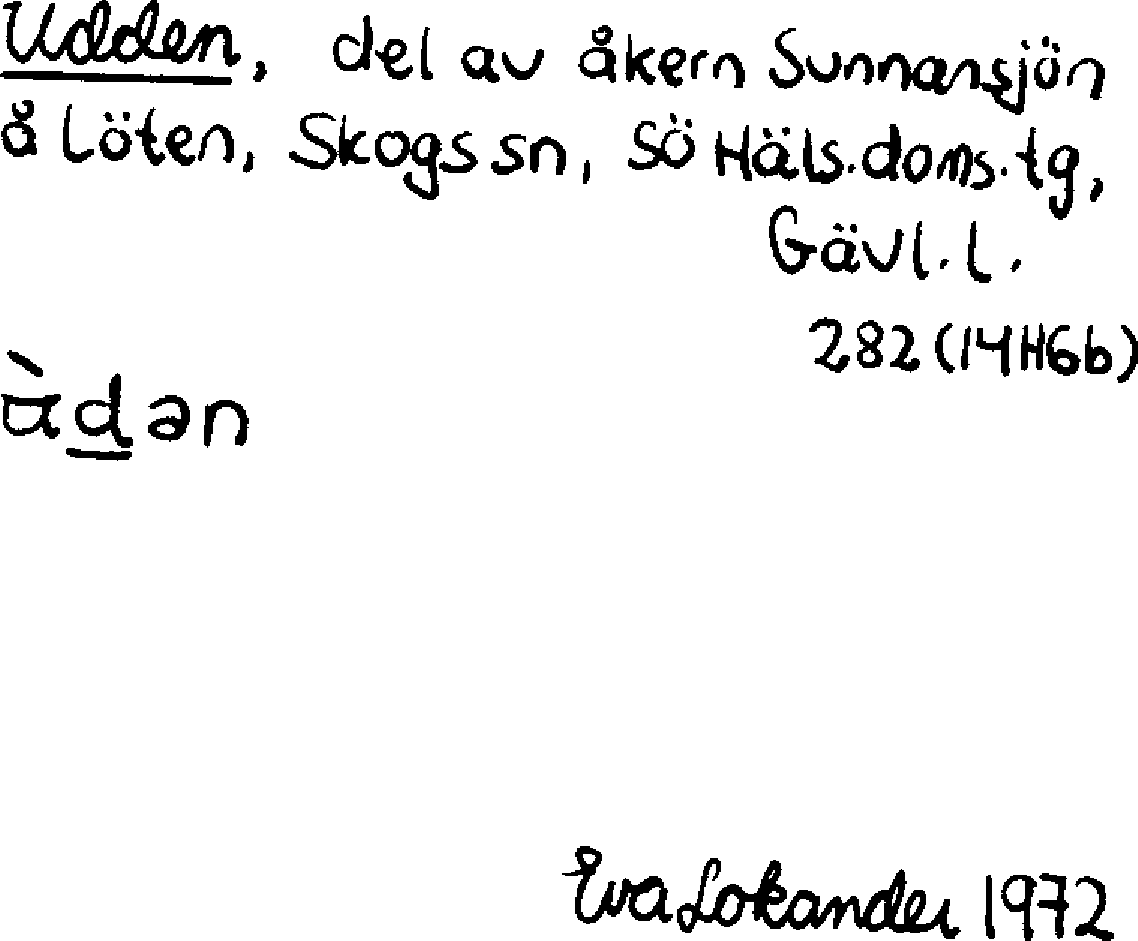 Udden, del av åkern Sunnansjön
å Löten, Skogs sn, Sö Häls.doms.tg,
Gävl.l.
282 (14H6b)
àdən
Eva Lokander 1972